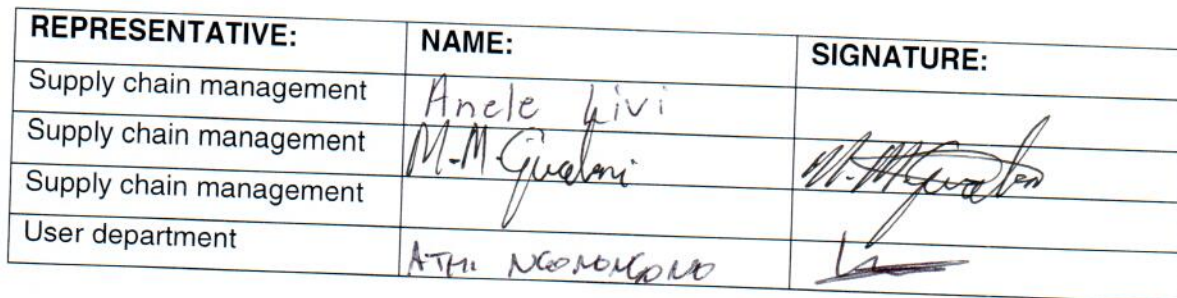 REPRESENTATIVE: NAME: SIGNATURE:
Supply chain management Anele Livi
Supply chain management M.M. Gwabeni
Supply chain management
User department